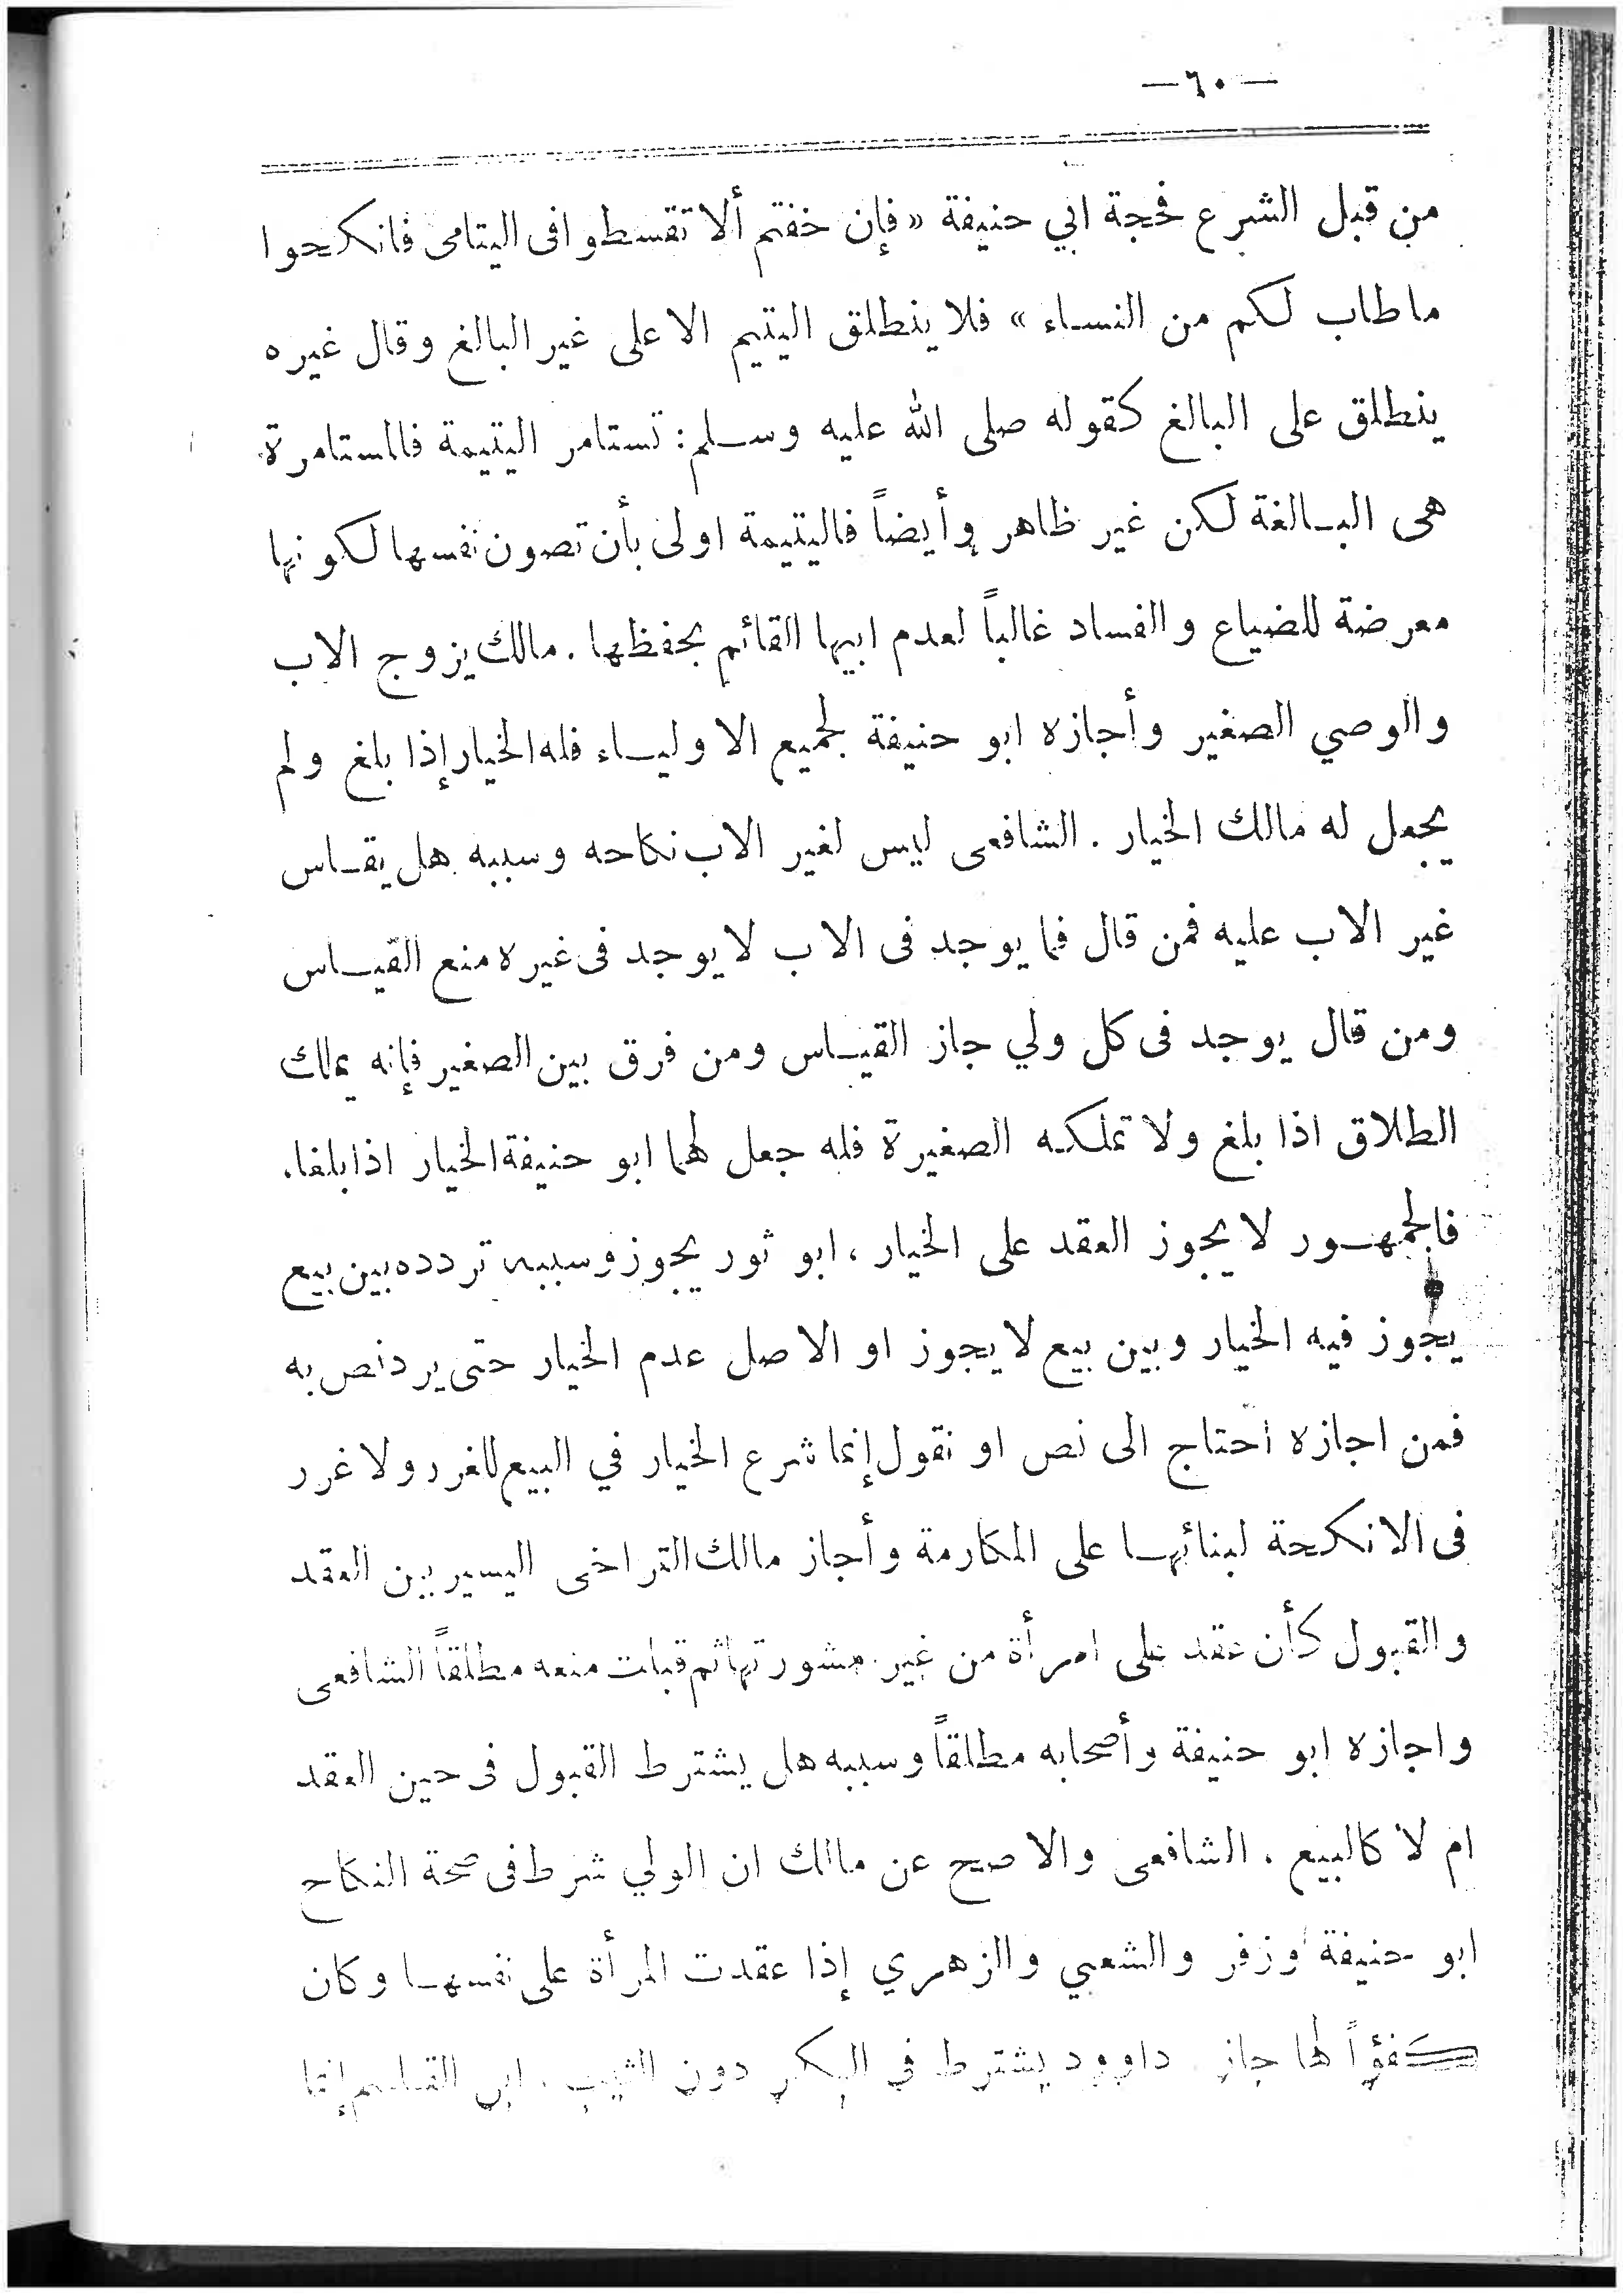 — ٦٠ —
من قبل الشرع فحجة ابي حنيفة «فإن خفتم ألا تقسطوا فى اليتامى فانكحوا
ما طاب لكم من النساء» فلا ينطلق اليتيم الا على غير البالغ وقال غيره
ينطلق على البالغ كقوله صلى الله عليه وسلم: تستامر اليتيمة فالمستامرة
هى البالغة لكن غير ظاهر وأيضاً فاليتيمة اولى بأن تصون نفسها لكونها
معرضة للضياع والفساد غالباً لعدم ابيها القائم بحفظها. مالك يزوج الاب
والوصي الصغير وأجازه ابو حنيفة لجميع الاولياء فله الخيار إذا بلغ ولم
يجعل له مالك الخيار. الشافعى ليس لغير الاب نكاحه وسببه هل يقاس
غير الاب عليه فمن قال فما يوجد فى الاب لا يوجد فى غيره منع القياس
ومن قال يوجد فى كل ولي جاز القياس ومن فرق بين الصغير فإنه يملك
الطلاق اذا بلغ ولا تملكه الصغيرة فله جعل لهما ابو حنيفة الخيار اذا بلغا.
فالجمهور لا يجوز العقد على الخيار، ابو ثور يجوز وسببه تردده بين بيع
يجوز فيه الخيار وبين بيع لا يجوز او الاصل عدم الخيار حتى يرد نص به
فمن اجازه احتاج الى نص او نقول إنما شرع الخيار في البيع للغرر ولا غرر
فى الانكحة لبنائها على المكارمة وأجاز مالك التراخى اليسير بين العقد
والقبول كأن عقد على امرأة من غير مشورتها ثم قبلت منعه مطلقاً الشافعى
واجازه ابو حنيفة وأصحابه مطلقاً وسببه هل يشترط القبول فى حين العقد
ام لا كالبيع. الشافعى والاصح عن مالك ان الولي شرط فى صحة النكاح
ابو حنيفة وزفر والشعبي والزهري إذا عقدت المرأة على نفسها وكان
كفؤاً لها جاز. داوود يشترط في البكر دون الثيب. ابن القاسم إنما